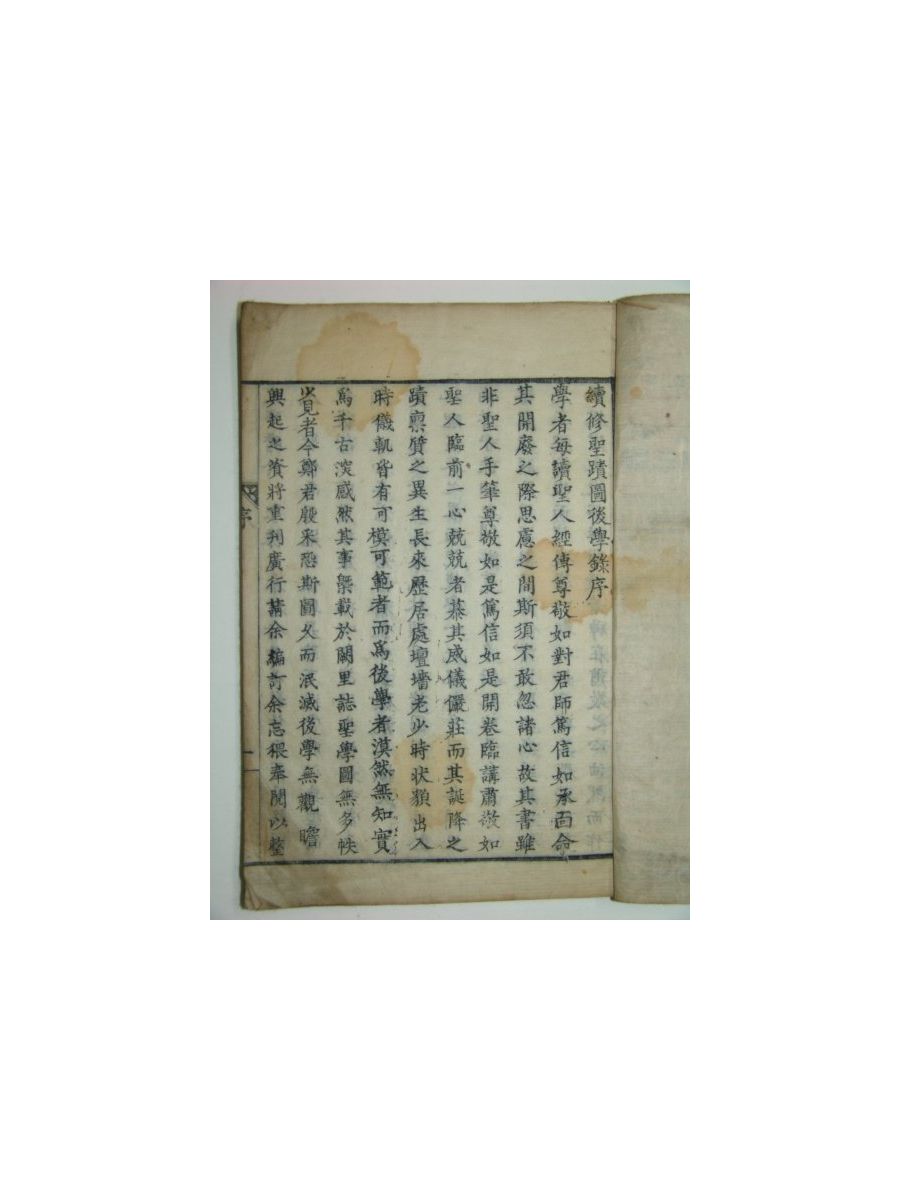 續修聖蹟圖後學錄序
學者每讀聖人經傳尊敬如對君師篤信如承面命
其開廢之際思慮之間斯須不敢忽諸心故其書雖
非聖人手筆尊敬如是篤信如是開卷臨講肅敬如
聖人臨前一心兢兢者慕其威儀儼莊而其誕降之
蹟禀質之異生長來歷居處壇墻老少時狀類出入
時儀軌皆有可模可範者而爲後學者漠然無知實
爲千古深感然其事槩載於闕里誌聖學圖無多帙
少見者今鄭君殷采恐斯圖久而泯滅後學無觀瞻
興起之資將重刊廣行請余編訂余忘猥奉閱以整
序
一